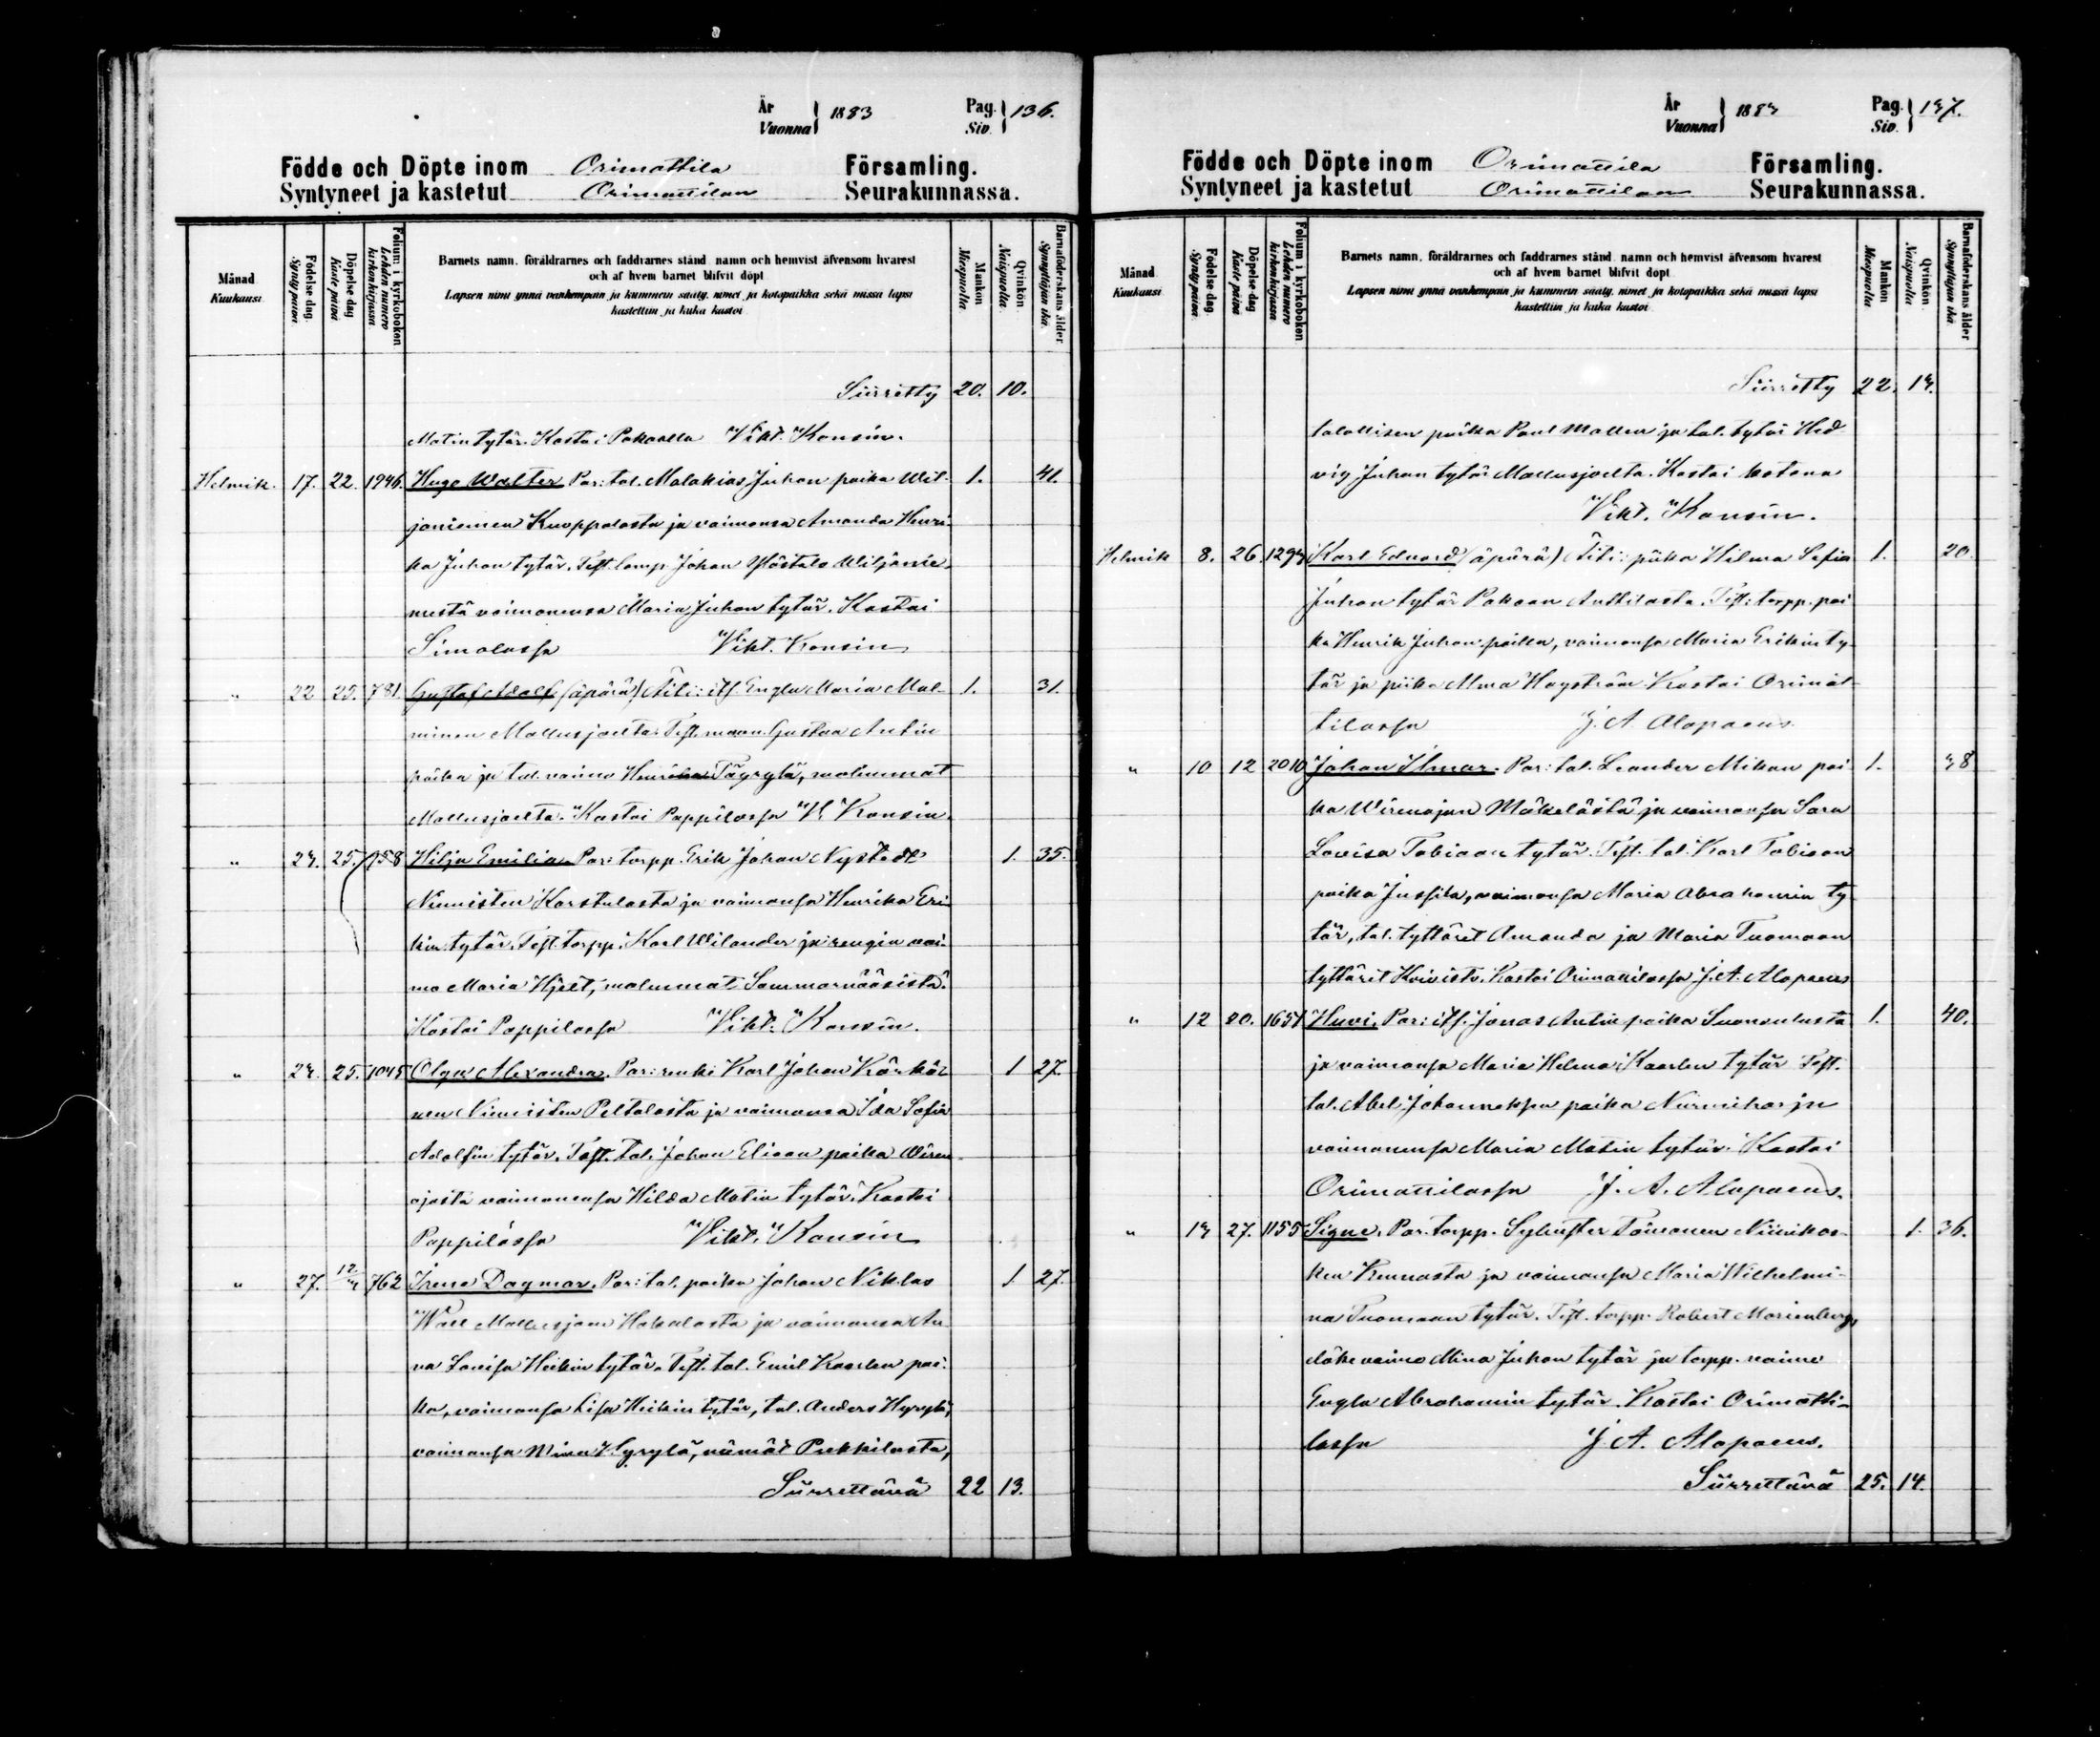 År
Vuonna } 1883
Pag.
Siv. } 136.
Födde och Döpte inom Orimattila Församling.
Syntyneet ja kastetut Orimattilan Seurakunnassa.
Månad
Kuukausi
Födelse dag.
Synty päivä
Döpelse dag
Kaste päivä
Folium i kyrkoboken
Lehden numero kirkonkirjassa.
Barnets namn, föräldrarnes och faddrarnes stånd, namn och hemvist äfvensom hvarest
och af hvem barnet blifvit döpt
Lapsen nimi ynnä vanhempain ja kummein sääty, nimet ja kotopaikka sekä missä lapsi
kastettiin ja kuka kastoi
Mankön
Miespuolta
Qvinkön.
Naispuolta.
Barnaföderskans ålder
Synnyttäjän ikä.
Siirretty 20. 10.
Matin tytär. Kastoi Pakaalla Vikt. Konsin.
Helmik. 17. 22. 1946. Hugo Walter Par: tal. Malakias Juhon poika Wil- 1. 41.
janiemen Knoppalasta ja vaimonsa Amanda Henri-
ka Juhon tytär. Test. lamp. Johan Yöstalo Wiljanie-
mestä vaimonensa Maria Juhon tytär. Kastoi
Simolassa Vikt. Konsin
" 22 25. 781. Gustaf Adolf (äpärä) Äiti: itf. Engla Maria Mal- 1. 31.
minen Mallusjoelta. Test. maan. Gustaa Antin
poika ja tal. vaimo Henrika Täyrylä, molemmat
Mallusjoelta. Kastoi Pappilassa V. Konsin
" 24. 25. 758 Hilja Emilia Par: torpp. Erik Johan Nystedt 1. 35.
Niinisten Karstulasta ja vaimonsa Henrika Eri-
kin tytär. Test. torpp. Karl Wilander ja rengin vai-
mo Maria Hjelt, molemmat Sammarnääsistä.
Kastoi Pappilassa Vikt. Konsin.
" 24. 25. 1045 Olga Alexandra. Par: renki Karl Johan Kärkäi- 1 27.
nen Niinisten Peltalasta ja vaimonsa Ida Sofia
Adolfin tytär. Test. tal. Johan Eliaan poika Wiren-
ojasta vaimonensa Hilda Matin tytär. Kastoi
Pappilassa Vikt. Konsin
" 27. 12/4 762 Irene Dagmar. Par: tal. poika Johan Niklas 1 27.
Wall Mallusjoen Hakalasta ja vaimonsa An-
na Lovisa Heikin tytär. Test. tal. Emil Kaarlen poi-
ka, vaimonsa Lisa Heikin tytär, tal. Anders Hyrylä,
vaimonsa Mina Hyrylä, nämät Pekkilasta,
Siirrettävä 22 13.
År
Vuonna } 1884
Pag.
Siv. } 147.
Födde och Döpte inom Orimattila Församling.
Syntyneet ja kastetut Orimattilan Seurakunnassa.
Månad
Kuukausi
Födelse dag.
Synty päivä.
Döpelse dag
Kaste päivä
Folium i kyrkoboken
Lehden numero kirkonkirjassa
Barnets namn, föräldrarnes och faddrarnes stånd, namn och hemvist äfvensom hvarest
och af hvem barnet blifvit döpt
Lapsen nimi ynnä vanhempain ja kummein sääty, nimet ja kotopaikka sekä missä lapsi
kastettiin ja kuka kastoi
Mankön
Miespuolta
Qvinkön.
Naispuolta
Barnaföderskans ålder
Synnyttäjän ikä
Siirretty 22. 14.
talollisen poika Paul Mallen ja tal. tytär Hed-
vig Juhon tytär Mallusjoelta. Kastoi kotona
Vikt. Konsin.
Helmik 8. 26. 1294 Karl Edvard (äpärä) Äiti: piika Hilma Sofia 1. 20.
Juhon tytär Pakaan Anttilasta. Test: torpp. poi-
ka Henrik Juhon poika, vaimonsa Maria Erikin ty-
tär ja piika Alma Hagström Kastoi Orimat-
tilassa J. A. Alopaeus
" 10 12 2010 Johan Ilmar. Par: tal. Leander Mikon poi- 1. 48
ka Wirenojan Mäkelästä ja vaimonsa Sara
Lovisa Tobiaan tytär. Test. tal. Karl Tobiaan
poika Jussila, vaimonsa Maria Abrahamin ty-
tär, tal. tyttäret Amanda ja Maria Tuomaan
tyttäret Koivisto. Kastoi Orimattilassa J. A. Alopaeus
" 12 20. 1654 Huvi. Par: itf. Jonas Antin poika Luomulasta 1. 40.
ja vaimonsa Maria Helena Kaarlen tytär Test.
tal. Abel Johanneksen poika Nurmikarja
vaimonensa Maria Matin tytär. Kastoi
Orimattilassa J. A. Alopaeus.
" 14 27. 1155 Signe. Par. torpp. Sylvester Toivonen Niinikos- 1. 36.
ken Kunnasta ja vaimonsa Maria Wilhelmi-
na Tuomaan tytär. Test. torpp. Robert Marienberg,
eläke vaimo Mina Juhon tytär ja torpp. vaimo
Engla Abrahamin tytär. Kastoi Orimatti-
lassa J. A. Alopaeus.
Siirrettävä 25. 14.